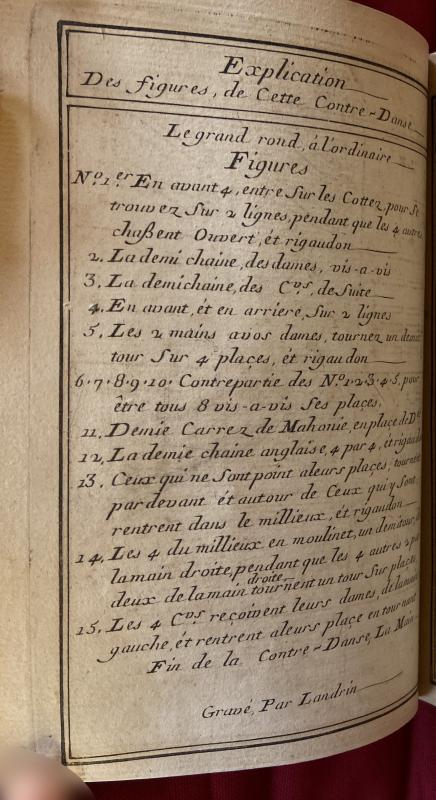 Explication
Des figures, de Cette Contre-Danse
Le grand rond, à l'ordinaire
Figures
N.º 1.er En avant 4, entre Sur les Cottez, pour Se
trouvez Sur 2 lignes, pendant que les 4 autres
chaßent Ouvert, ét rigaudon
2. La demi chaine, des dames, vis-a-vis
3. La demi chaine, des C.vrs, de Suite
4. En avant, ét en arriere, Sur 2 lignes
5, Les 2 mains avos dames, tournez un demi
tour Sur 4 plaçes, ét rigaudon
6.7.8.9.10. Contrepartie des N.º 1.2.3.4.5, pour
être tous 8 vis-a-vis Ses plaçes,
11, Demie Carrez de Mahonie, en plaçe de
12, La demie chaine anglaise, 4 par 4, ét
13, Ceux qui ne Sont point aleurs plaçes, tournent
par devant ét autour de Ceux qui y Sont,
rentrent dans le millieux, ét rigaudon
14, Les 4 du millieux en moulinet, un demi tour,
lamain droite, pendant que les 4 autres 2 par
deux de lamain droite tournent un tour Sur plaçe,
15, Les 4 C.vrs reçoivent leurs dames, de lamain
gauche, ét rentrent aleurs plaçe en tournant
Fin de la Contre-Danse, La
Gravé, Par Landrin